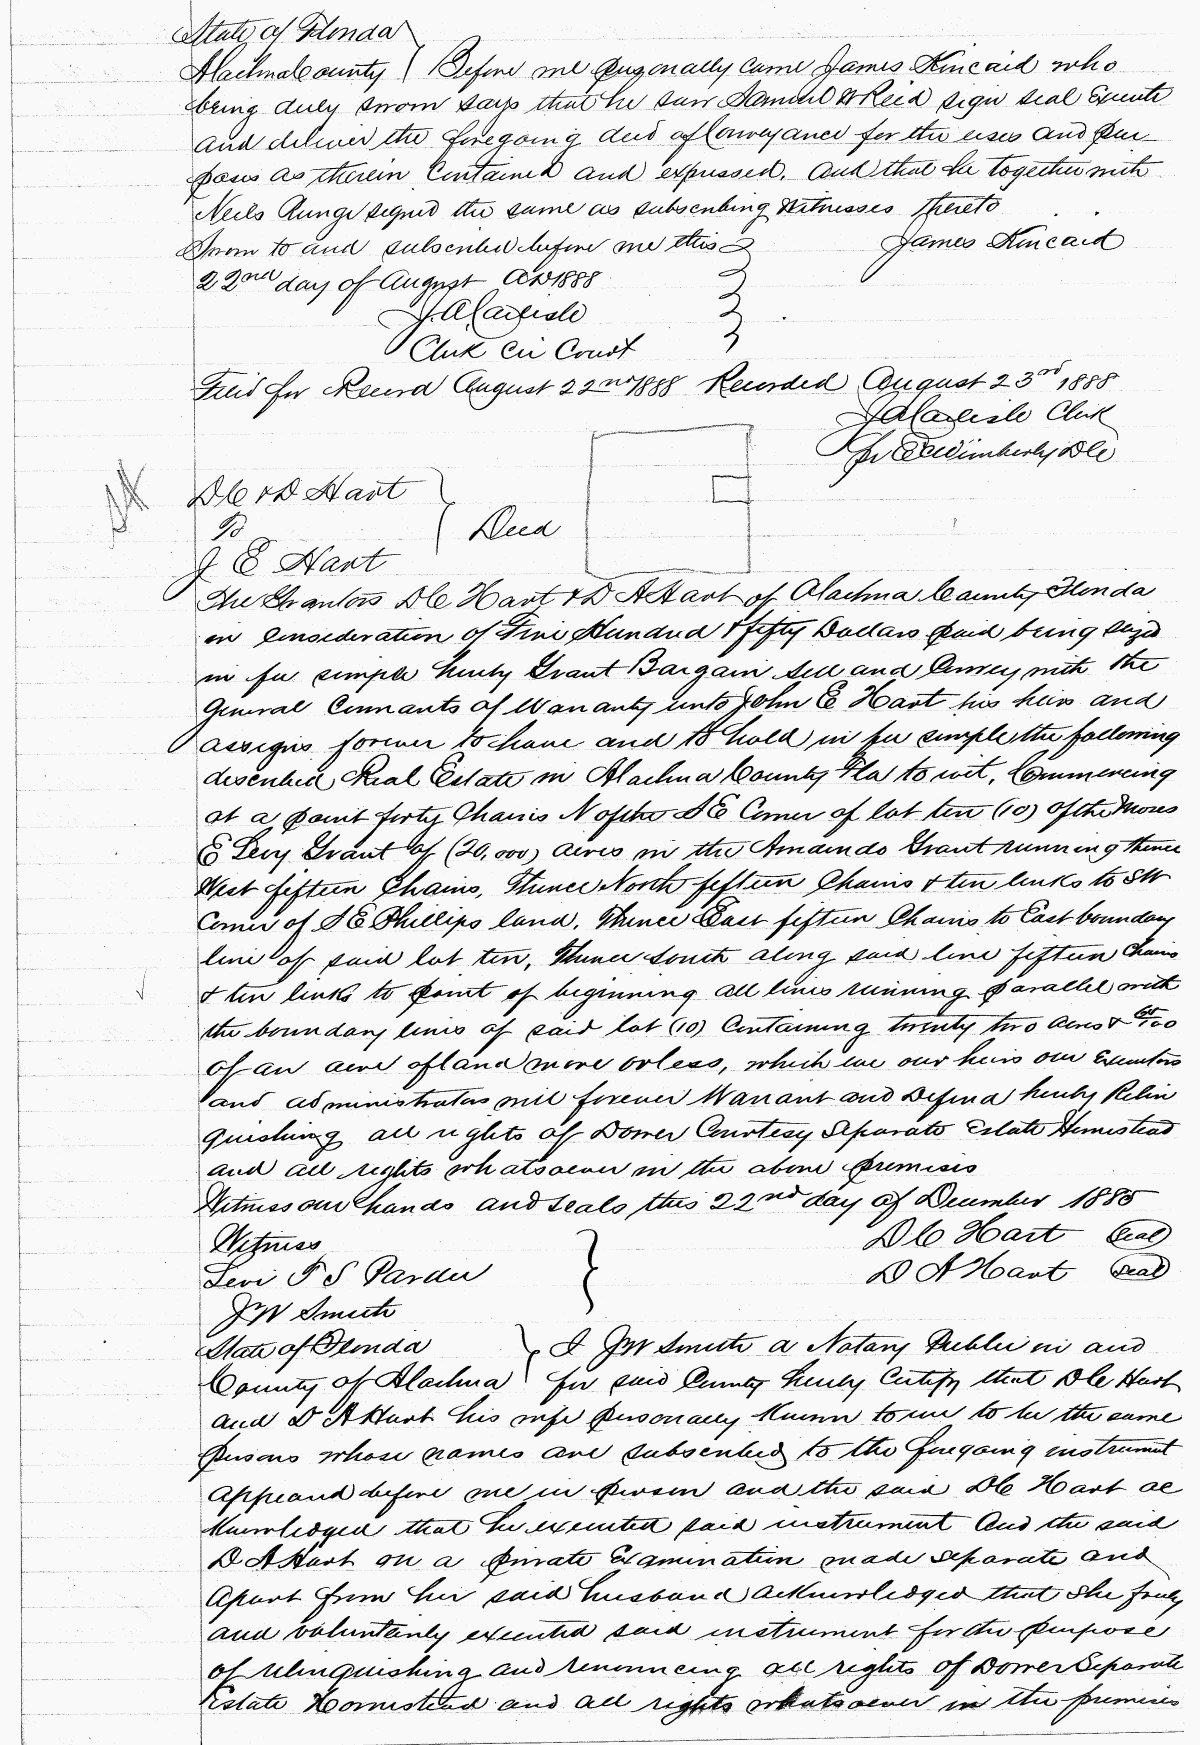 State of Florida
Alachua County Before me personally came James Kincaid who
being duly sworn says that he saw Samuel W Reed sign seal Execute
and deliver the foregoing deed of Conveyance for the uses and pur
poses as therein Contained and expressed. and that he together with
Neils Runge signed the same as subscribing Witnesses thereto
Sworn to and subscribed before me this James Kincaid
22nd day of August AD 1888
J A Carlisle
Clerk Cir Court
Filed for Record August 22nd 1888 Recorded August 23rd 1888
J A Carlisle Clerk
pr Wimberly DC
D C & D Hart
To Deed
J E Hart
The Grantors D C Hart & D A Hart of Alachua County Florida
in Consideration of Five Hundred & fifty Dollars paid being seized
in fee simple hereby Grant Bargain Sell and Convey with the
General Covenants of Warranty unto John E Hart his heirs and
assigns forever to have and to hold in fee simple the following
described Real Estate in Alachua County Fla to wit, Commencing
at a point forty Chains N of the S E Corner of lot ten (10) of the Moses
E Levy Grant of (20,000) acres in the Arredondo Grant running thence
West fifteen Chains, Thence North fifteen Chains & ten links to SW
Corner of S E Phillips land, Thence East fifteen Chains to East boundary
line of said lot ten, Thence South along said line fifteen Chains
& ten links to point of beginning all lines running parallel with
the boundary lines of said lot (10) Containing twenty two acres &
of an acre of land more or less, which we our heirs our Executors
and administrators will forever Warrant and Defend hereby Relin
quishing all rights of Dower Courtesy Separate Estate Homestead
and all rights whatsoever in the above premises
Witness our hands and seals this 22nd day of December 1885
Witness D C Hart Seal
Levi T S Pardee D A Hart Seal
J W Smith
State of Florida I J W Smith a Notary Public in and
County of Alachua for said County hereby Certify that D C Hart
and D A Hart his wife personally Known to me to be the same
persons whose names are subscribed to the foregoing instrument
appeared before me in person and the said D C Hart ac
knowledged that he executed said instrument And the said
D A Hart on a private Examination made separate and
apart from her said husband acknowledged that She freely
and voluntarily executed said instrument for the purpose
of relinquishing and renouncing all rights of Dower Separate
Estate Homestead and all rights whatsoever in the premises